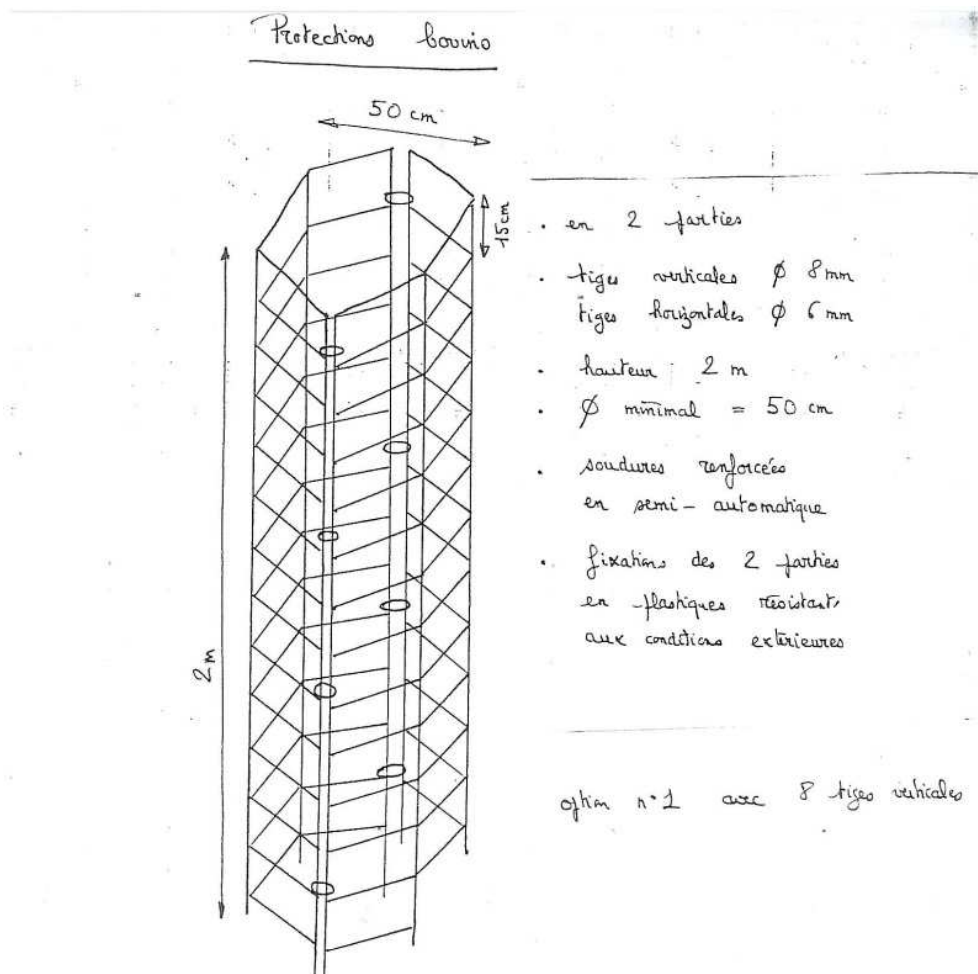 Protections bovins
50 cm
15cm
2m
. en 2 parties
. tiges verticales Ø 8 mm
tiges horizontales Ø 6 mm
. hauteur : 2 m
. Ø minimal = 50 cm
. soudures renforcées
en semi-automatique
. fixations des 2 parties
en plastiques résistant,
aux conditions extérieures
option n°1 avec 8 tiges verticales